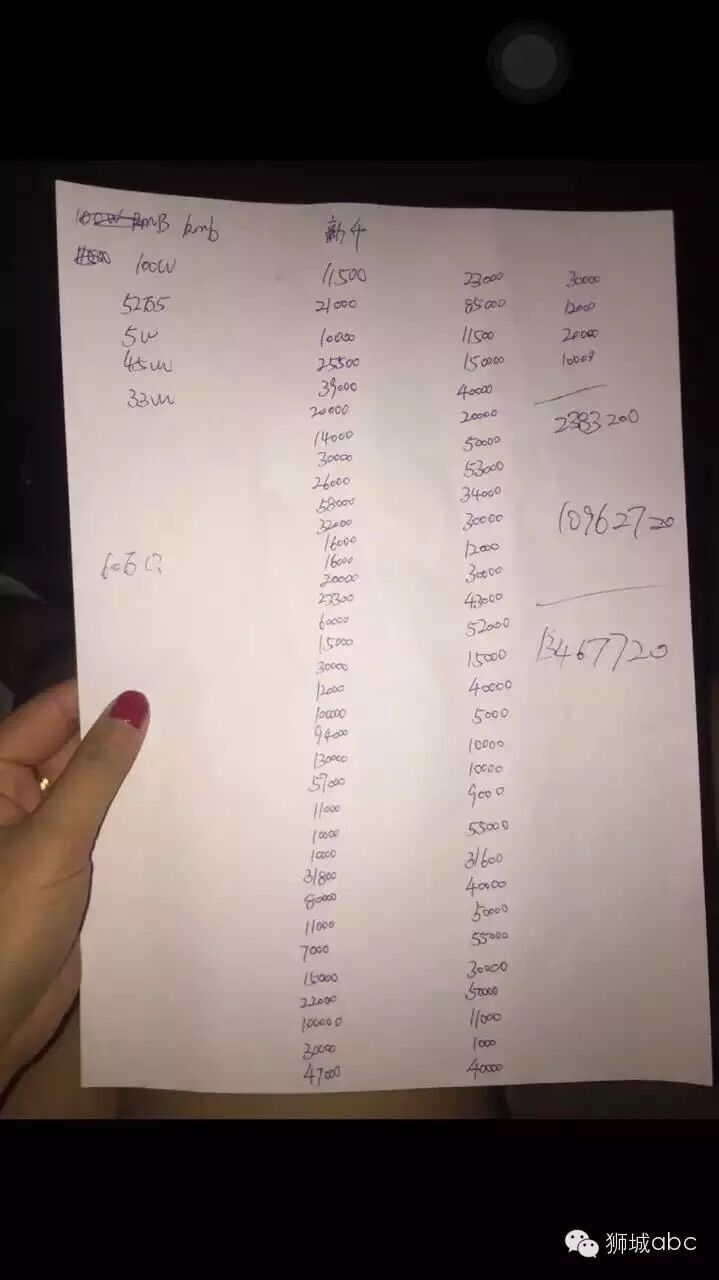 rmb
100W
52万5
5W
45W
33W
新中
11500
21000
10000
25500
39000
20000
14000
30000
26000
58000
32000
16000
16000
20000
23300
60000
15000
30000
12000
10000
94000
130000
57000
11000
10000
10000
31800
80000
11000
7000
15000
22000
100000
30000
47000
23000
85000
11500
150000
40000
20000
50000
53000
34000
30000
12000
30000
43000
52000
15000
40000
5000
10000
10000
9000
55000
31600
40000
50000
55000
30000
50000
11000
1000
40000
30000
12000
20000
10000
2383200
10962720
13467720
狮城abc